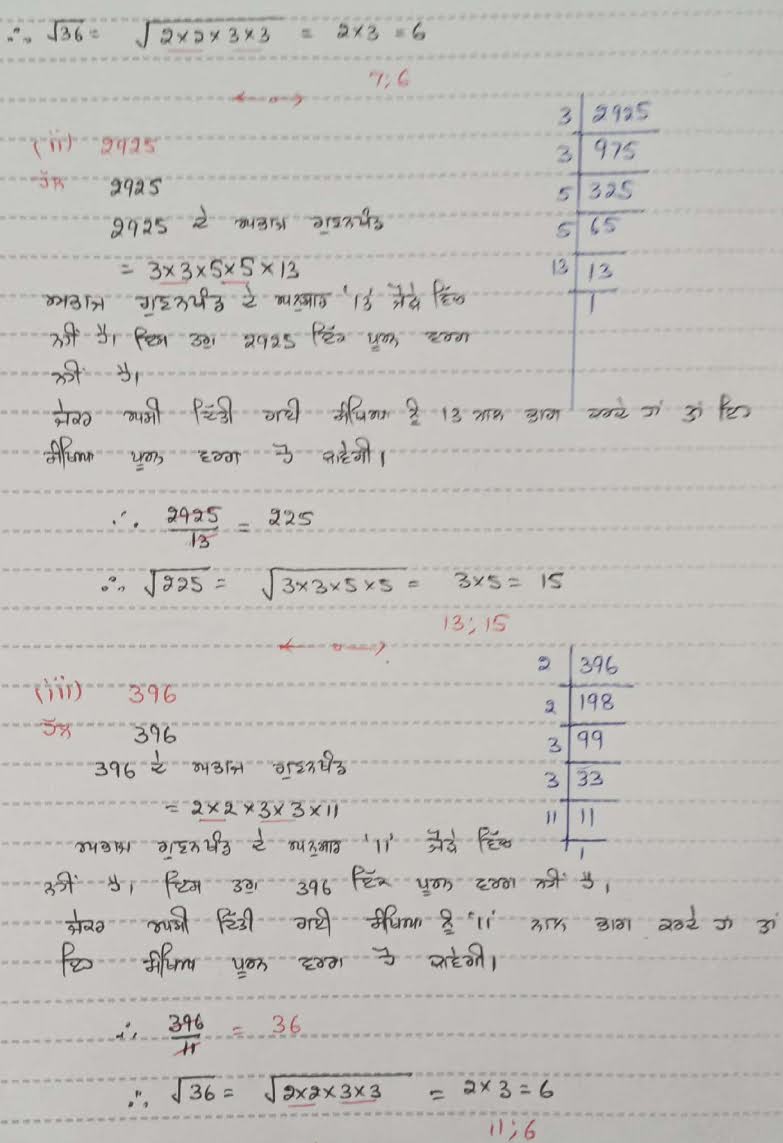 ∴ √36 = √2×2×3×3 = 2×3 = 6
7; 6
(ii) 2925
ਹੱਲ 2925
2925 ਦੇ ਅਭਾਜ ਗੁਣਨਖੰਡ
= 3×3×5×5×13
ਅਭਾਜ ਗੁਣਨਖੰਡ ਦੇ ਅਨੁਸਾਰ '13' ਜੋੜੇ ਵਿੱਚ
ਨਹੀਂ ਹੈ। ਇਸ ਤਰ੍ਹਾਂ 2925 ਇੱਕ ਪੂਰਨ ਵਰਗ
ਨਹੀਂ ਹੈ।
ਜੇਕਰ ਅਸੀਂ ਦਿੱਤੀ ਗਈ ਸੰਖਿਆ ਨੂੰ 13 ਨਾਲ ਭਾਗ ਕਰਦੇ ਹਾਂ ਤਾਂ ਇਹ
ਸੰਖਿਆ ਪੂਰਨ ਵਰਗ ਹੋ ਜਾਵੇਗੀ।
∴ 2925/13 = 225
∴ √225 = √3×3×5×5 = 3×5 = 15
13; 15
3 | 2925
3 | 975
5 | 325
5 | 65
13 | 13
1
(iii) 396
ਹੱਲ 396
396 ਦੇ ਅਭਾਜ ਗੁਣਨਖੰਡ
= 2×2×3×3×11
ਅਭਾਜ ਗੁਣਨਖੰਡ ਦੇ ਅਨੁਸਾਰ '11' ਜੋੜੇ ਵਿੱਚ
ਨਹੀਂ ਹੈ। ਇਸ ਤਰ੍ਹਾਂ 396 ਇੱਕ ਪੂਰਨ ਵਰਗ ਨਹੀਂ ਹੈ।
ਜੇਕਰ ਅਸੀਂ ਦਿੱਤੀ ਗਈ ਸੰਖਿਆ ਨੂੰ '11' ਨਾਲ ਭਾਗ ਕਰਦੇ ਹਾਂ ਤਾਂ
ਇਹ ਸੰਖਿਆ ਪੂਰਨ ਵਰਗ ਹੋ ਜਾਵੇਗੀ।
∴ 396/11 = 36
∴ √36 = √2×2×3×3 = 2×3 = 6
11; 6
2 | 396
2 | 198
3 | 99
3 | 33
11 | 11
1